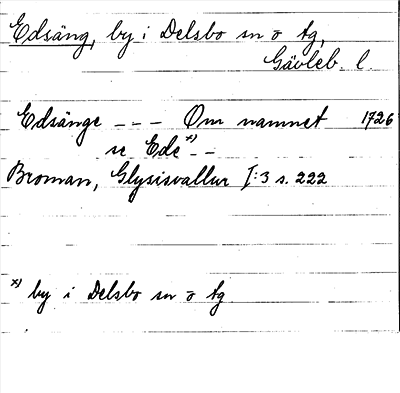 Edsäng, by i Delsbo sn o tg,
Gävleb. l.
Edsänge --- Om namnet 1726
se Ede x) --
Broman, Glysisvallur I:3 s. 222
x) by i Delsbo sn o tg